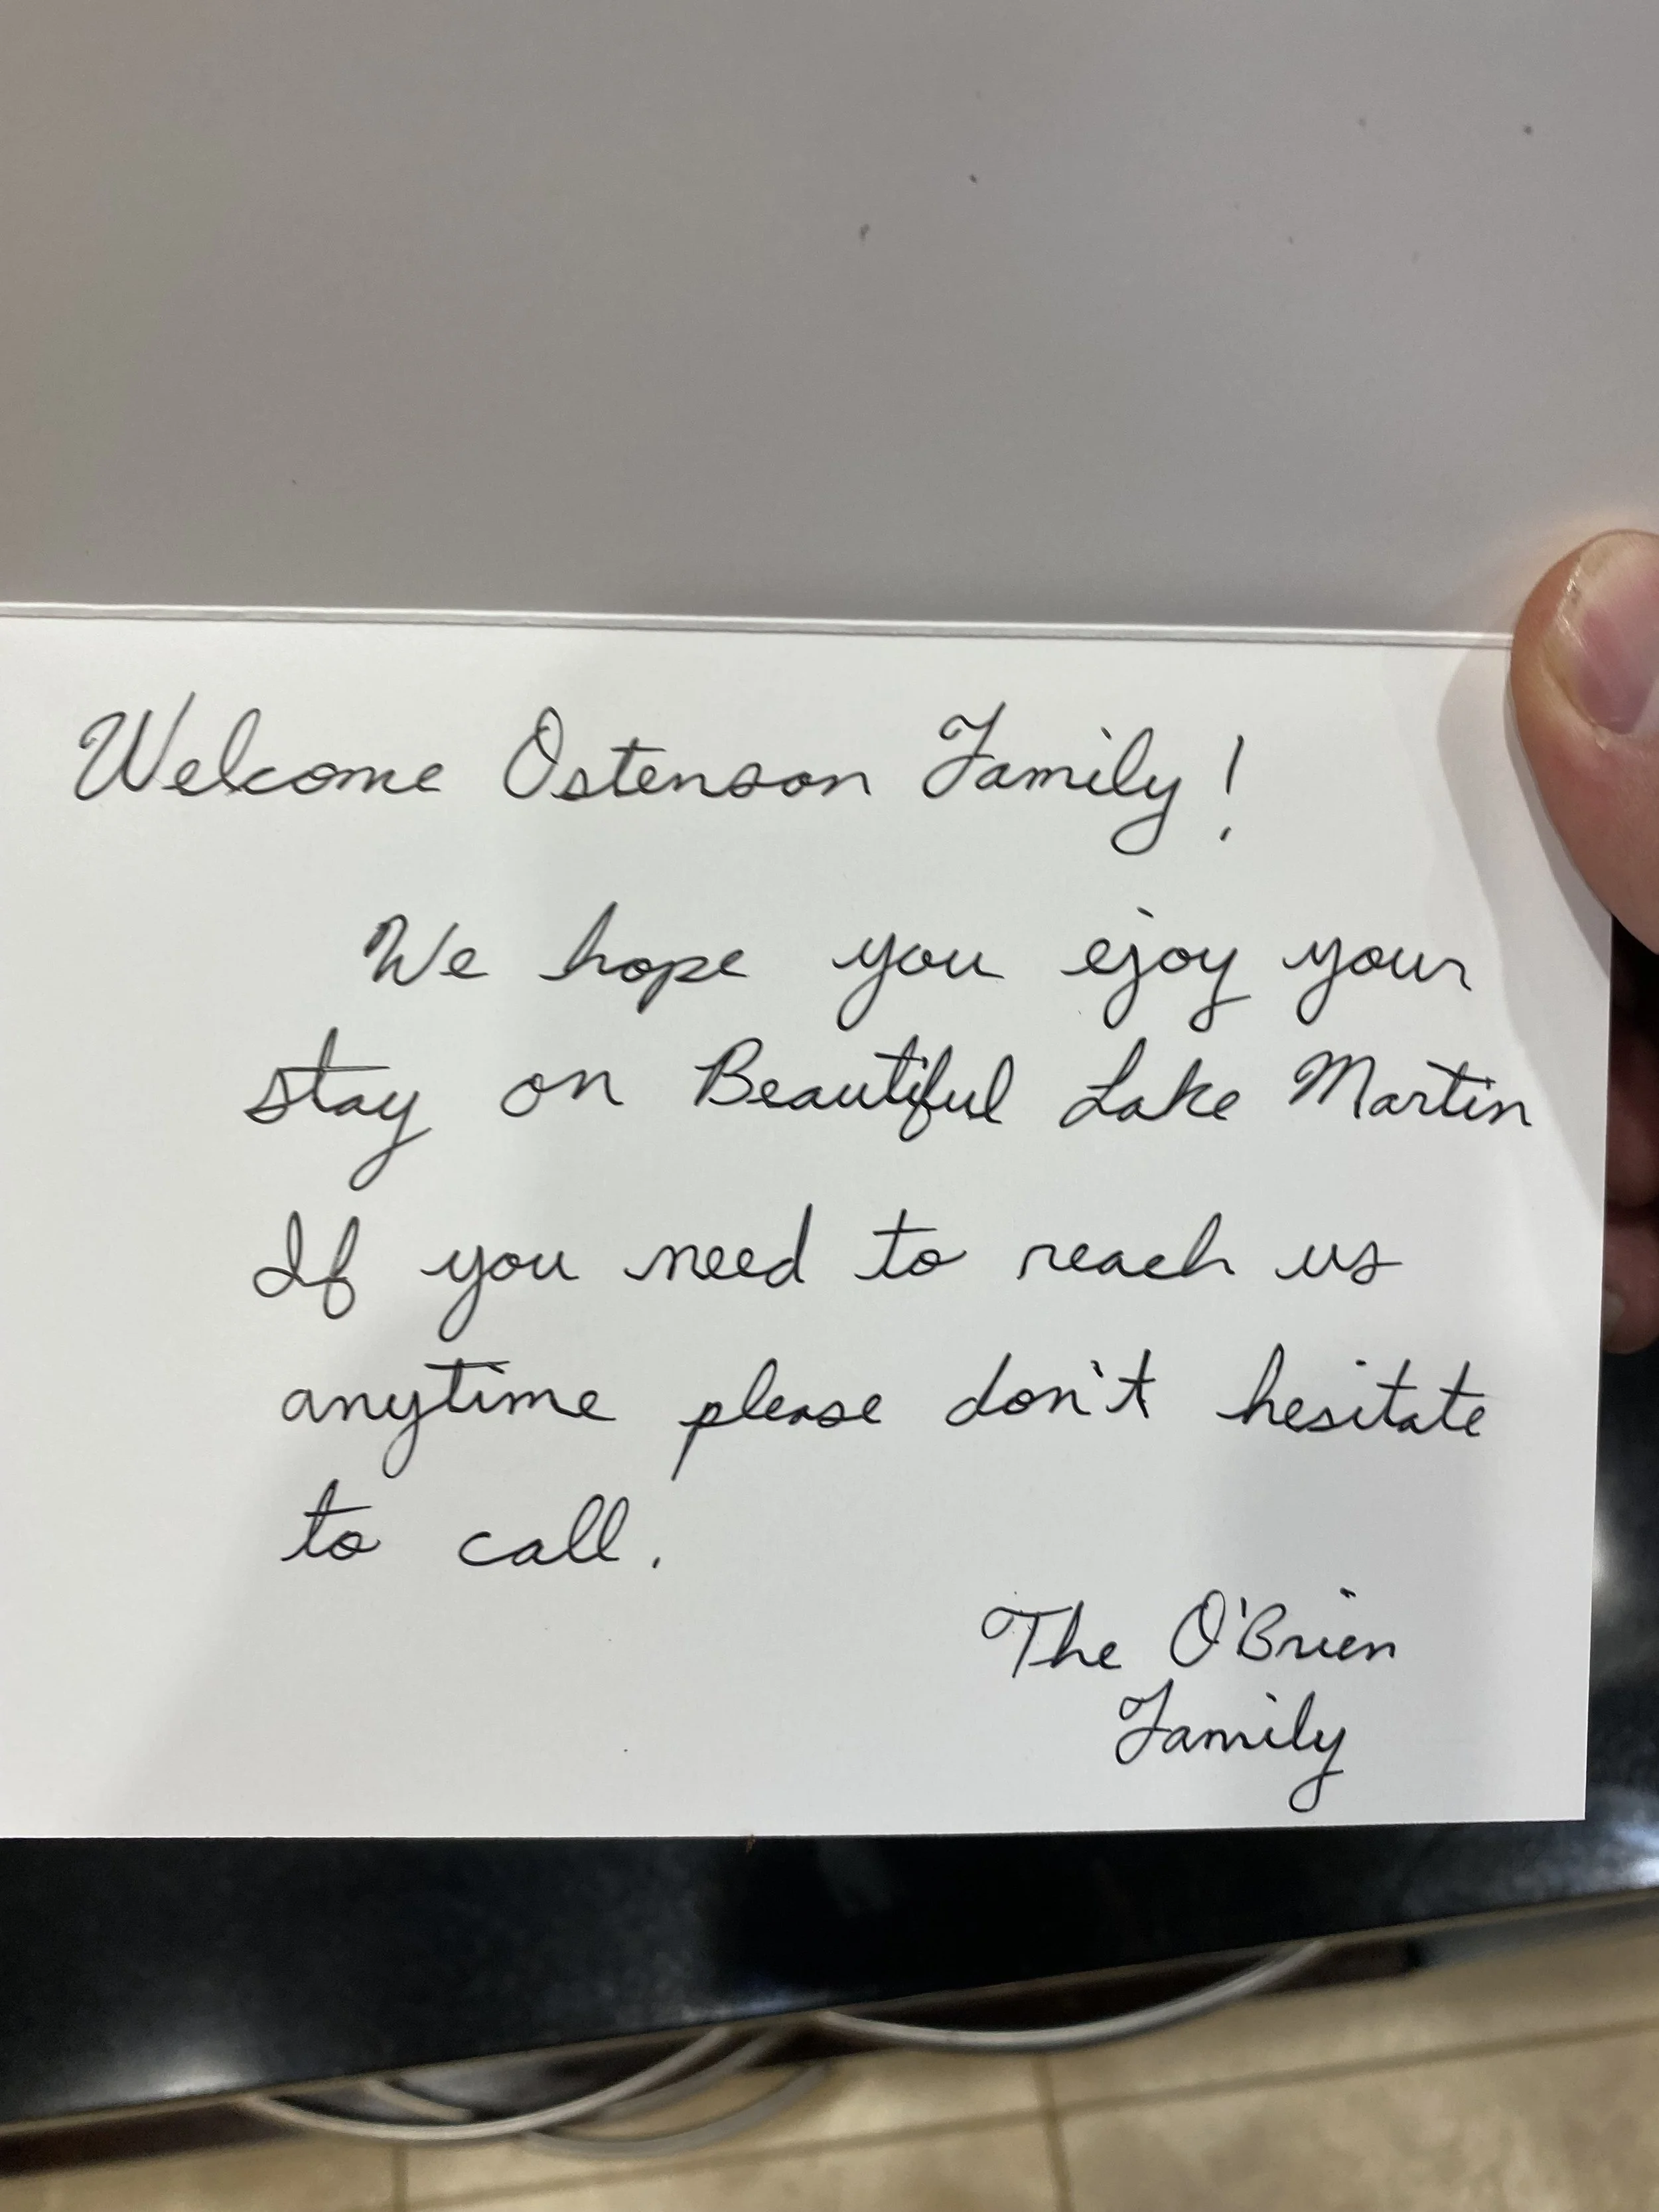 Welcome Ostenson Family!
We hope you ejoy your
stay on Beautiful Lake Martin
If you need to reach us
anytime please don't hesitate
to call.
The O'Brien
Family